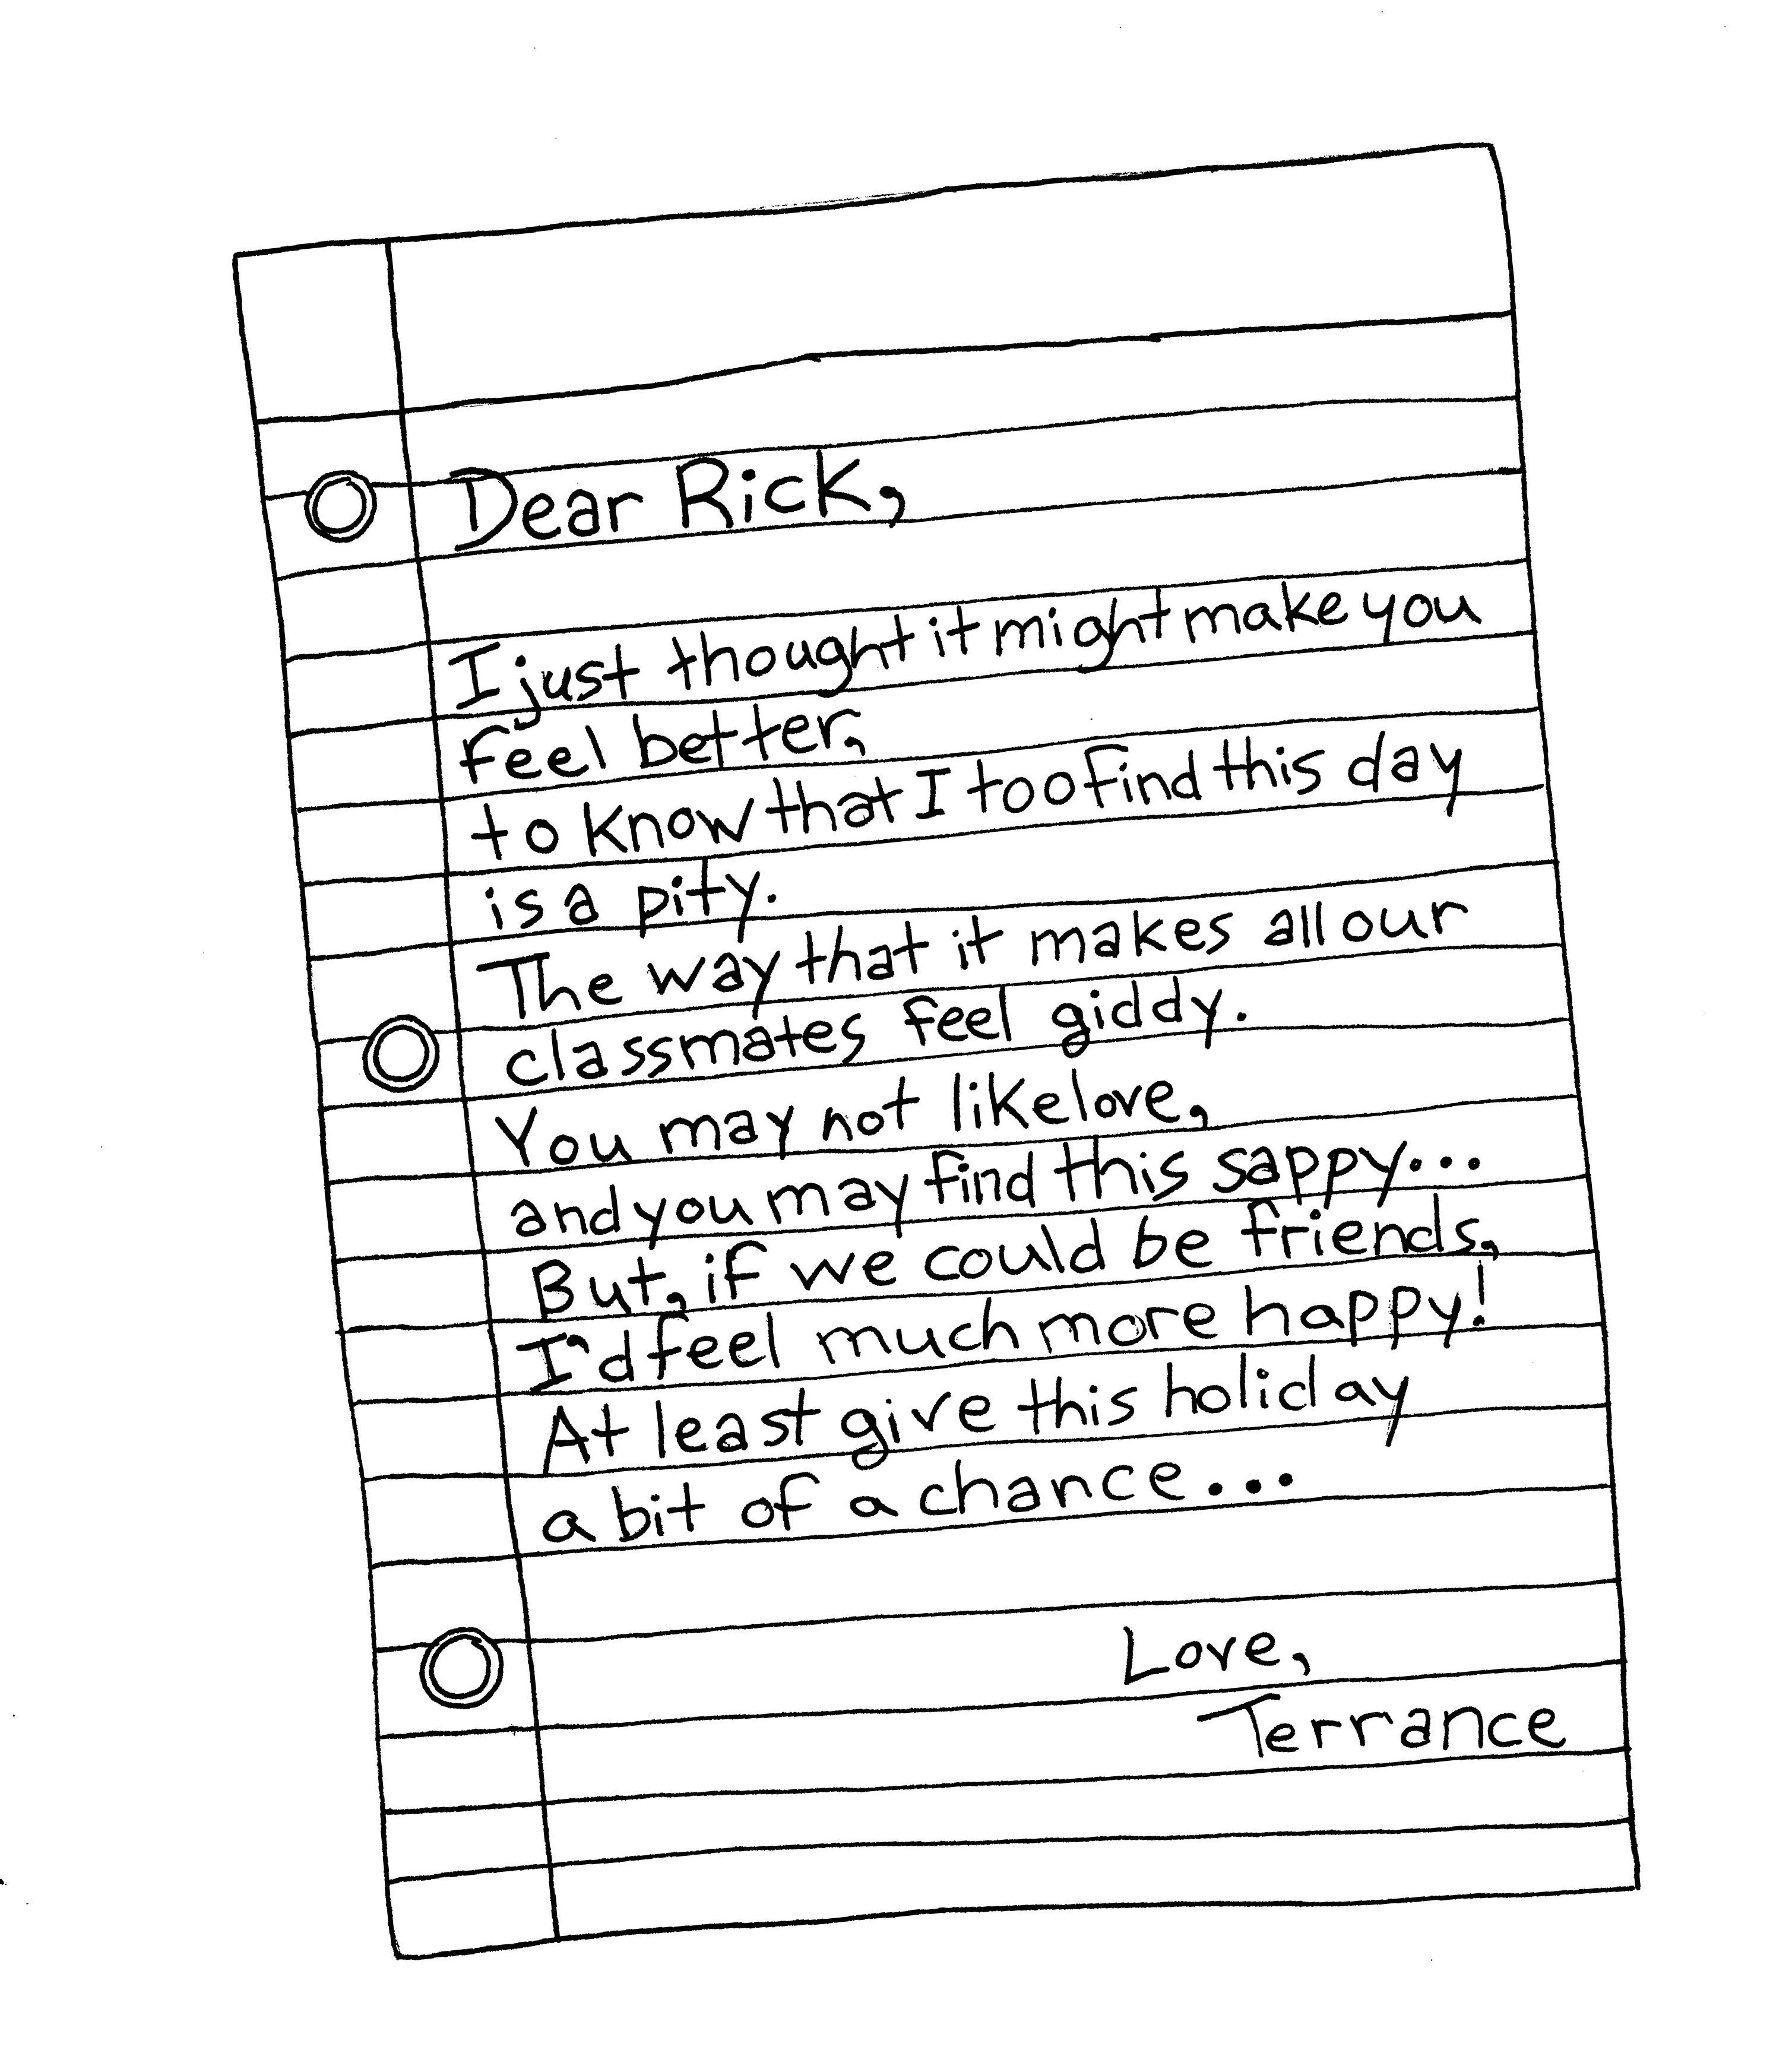 Dear Rick,
I just thought it might make you
feel better,
to know that I too find this day
is a pity.
The way that it makes all our
classmates feel giddy.
You may not like love,
and you may find this sappy...
But, if we could be friends,
I'd feel much more happy!
At least give this holiday
a bit of a chance...
Love,
Terrance